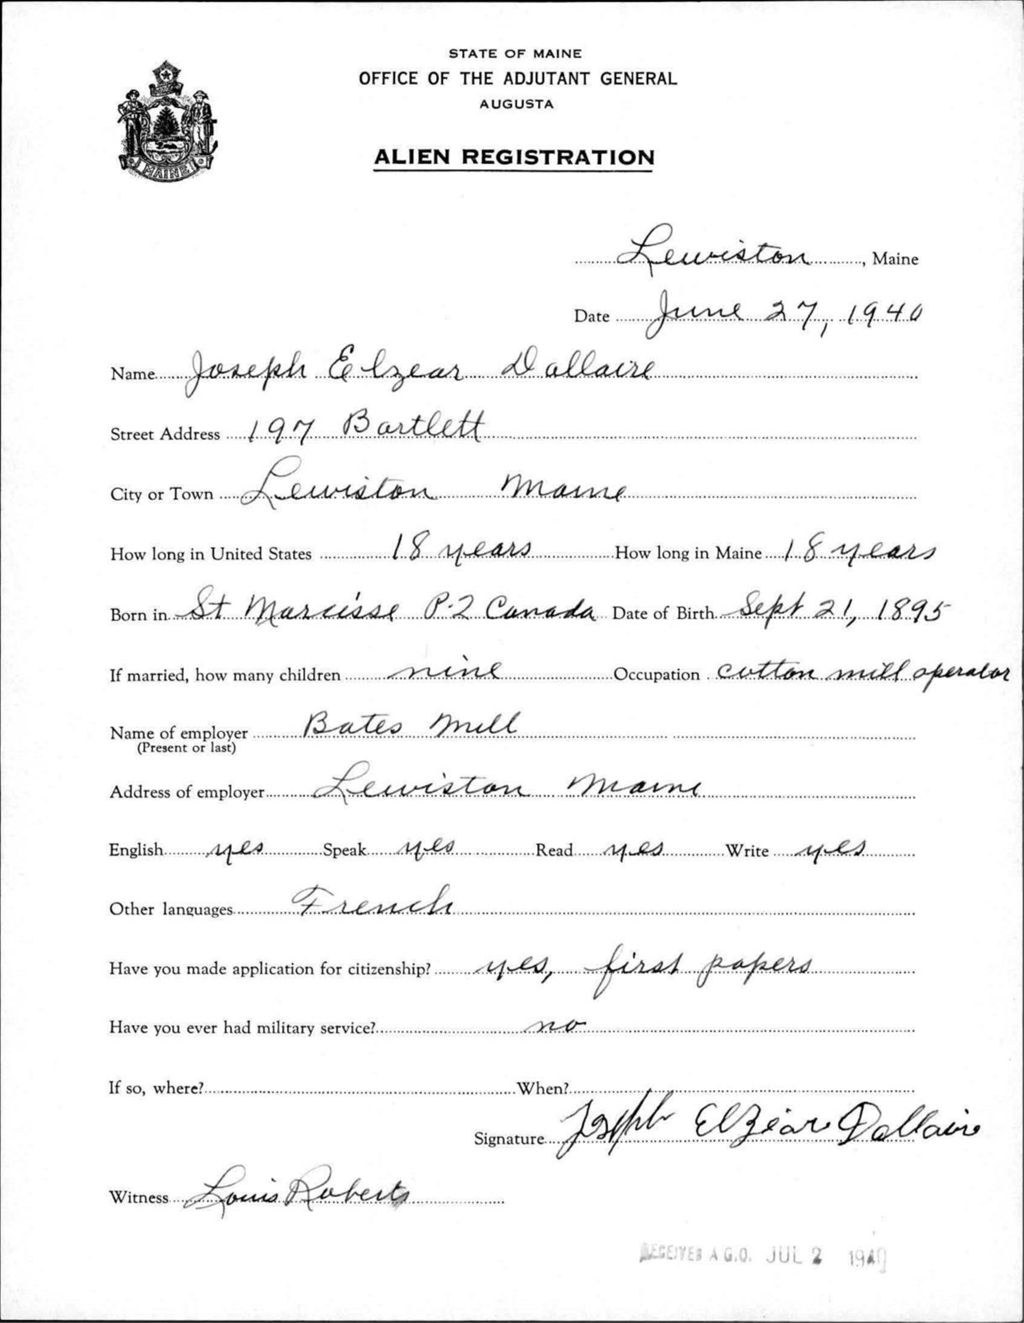 STATE OF MAINE
OFFICE OF THE ADJUTANT GENERAL
AUGUSTA
ALIEN REGISTRATION
MAINE
Lewiston, Maine
Date June 27, 1940
Name Joseph Elzear Dallaire
Street Address 197 Bartlett
City or Town Lewiston Maine
How long in United States 18 years How long in Maine 18 years
Born in St Marcisse P-2 Canada Date of Birth Sept 21, 1895
If married, how many children nine Occupation cotton mill operator
Name of employer Bates Mill
(Present or last)
Address of employer Lewiston Maine
English yes Speak yes Read yes Write yes
Other languages French
Have you made application for citizenship? yes, first papers
Have you ever had military service? no
If so, where? When?
Signature Joseph Elzéar Dallaire
Witness Louis Roberts
RECEIVED A.G.O. JUL 2 1940